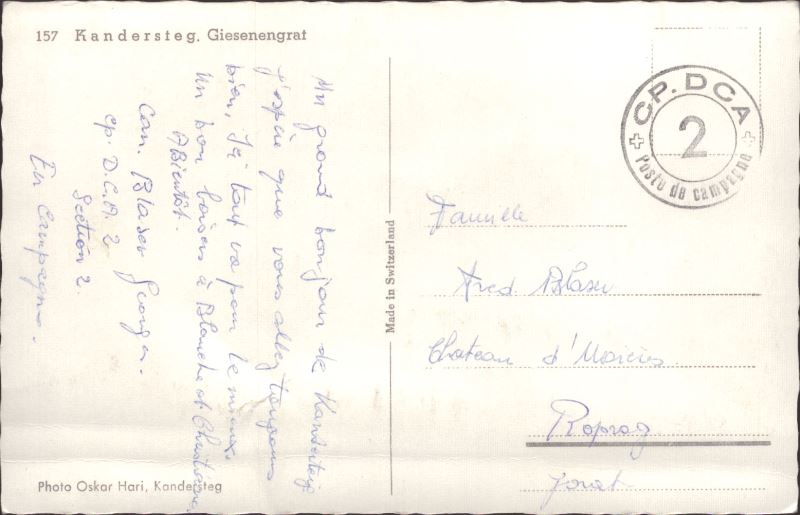 157 Kandersteg, Giesenengrat
Un grand bonjour de Kandersteg
J'espère que vous allez toujours
bien, Ici tout va pour le mieux.
Un bon baisers à Blanche et Christiane
A Bientôt.
Can. Blaser Georges.
cp. D.C.A. 2
Section 2.
En Campagne.
Photo Oskar Hari, Kandersteg
Made in Switzerland
CP. DCA
2
Poste de campagne
Famille
Fred Blaser
Chateau d'
Ropraz
Jorat